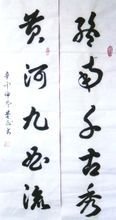 终南千古秀
黄河九曲流